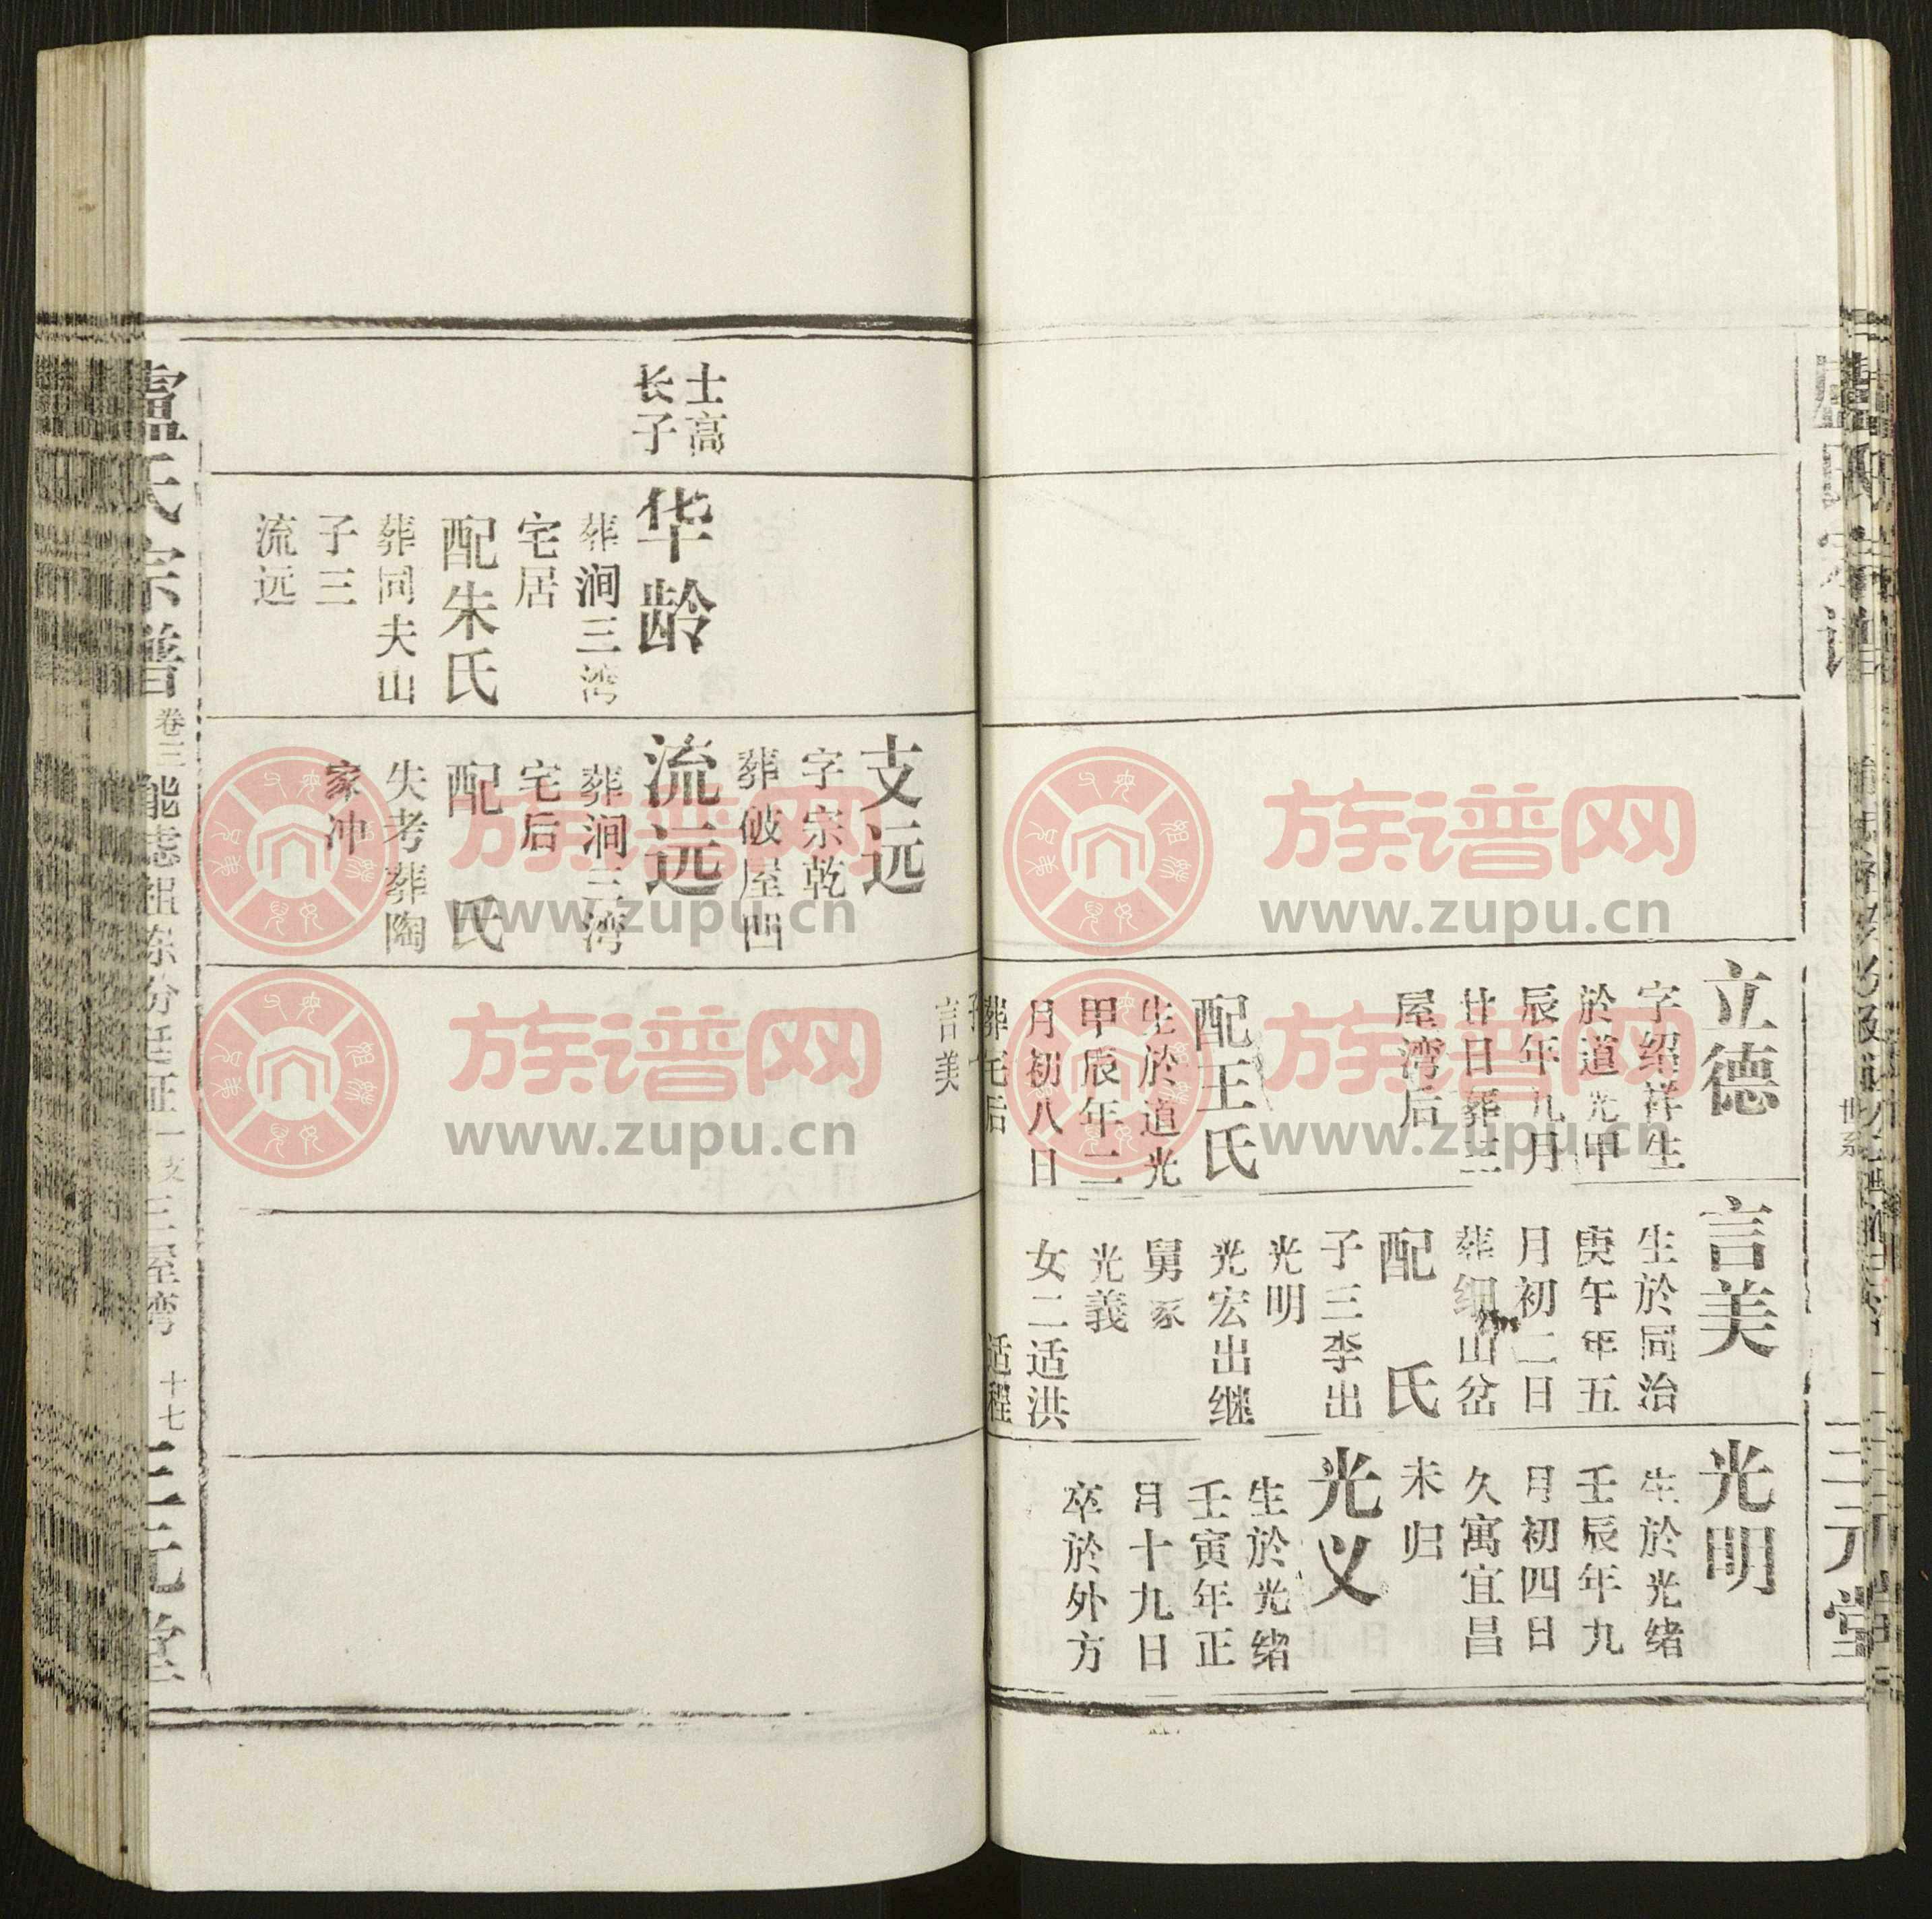 立德
字绍祥生
於道光甲
辰年九月
廿日葬三
屋湾后
配王氏
生於道光
甲辰年二
月初八日
葬宅后
言美
言美
生於同治
庚午年五
月初二日
葬细山岔
配 氏
子三李出
光明
光宏出继
舅家
光義
女二适洪
适程
光明
生於光绪
壬辰年九
月初四日
久寓宜昌
未归
光义
生於光绪
壬寅年正
月十九日
卒於外方
三元堂
世系
士高
长子
华龄
葬涧三湾
宅居
配朱氏
葬同夫山
子三
流远
支远
字宗乾
葬破屋凹
流远
葬涧三湾
宅后
配 氏
失考葬陶
家冲
盧氏宗譜
卷三
三屋湾
十七
三元堂
族谱网
www.zupu.cn
族谱网
www.zupu.cn
族谱网
www.zupu.cn
族谱网
www.zupu.cn